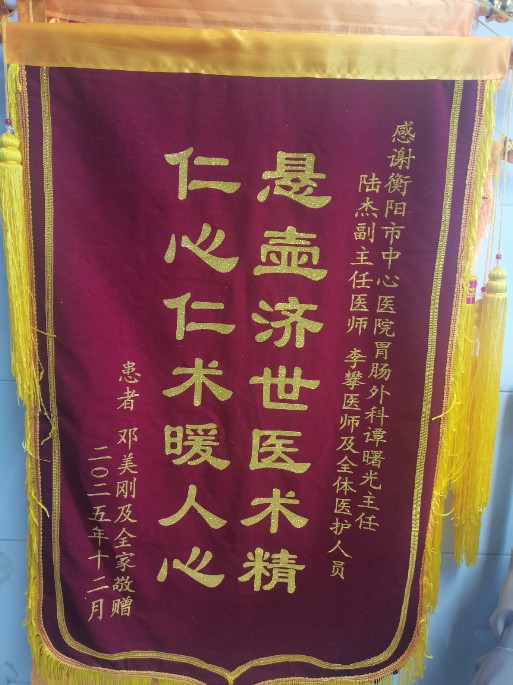 感谢衡阳市中心医院胃肠外科谭曙光主任
陆杰副主任医师 李攀医师及全体医护人员
悬壶济世医术精
仁心仁术暖人心
患者 邓美刚及全家敬赠
二〇二五年十二月